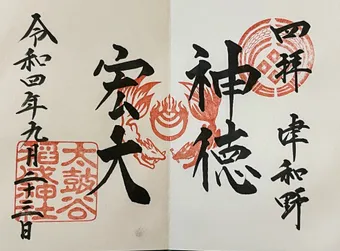 四拝
津和野
神徳
宏大
令和四年九月二十三日
太鼓谷
稲成神社